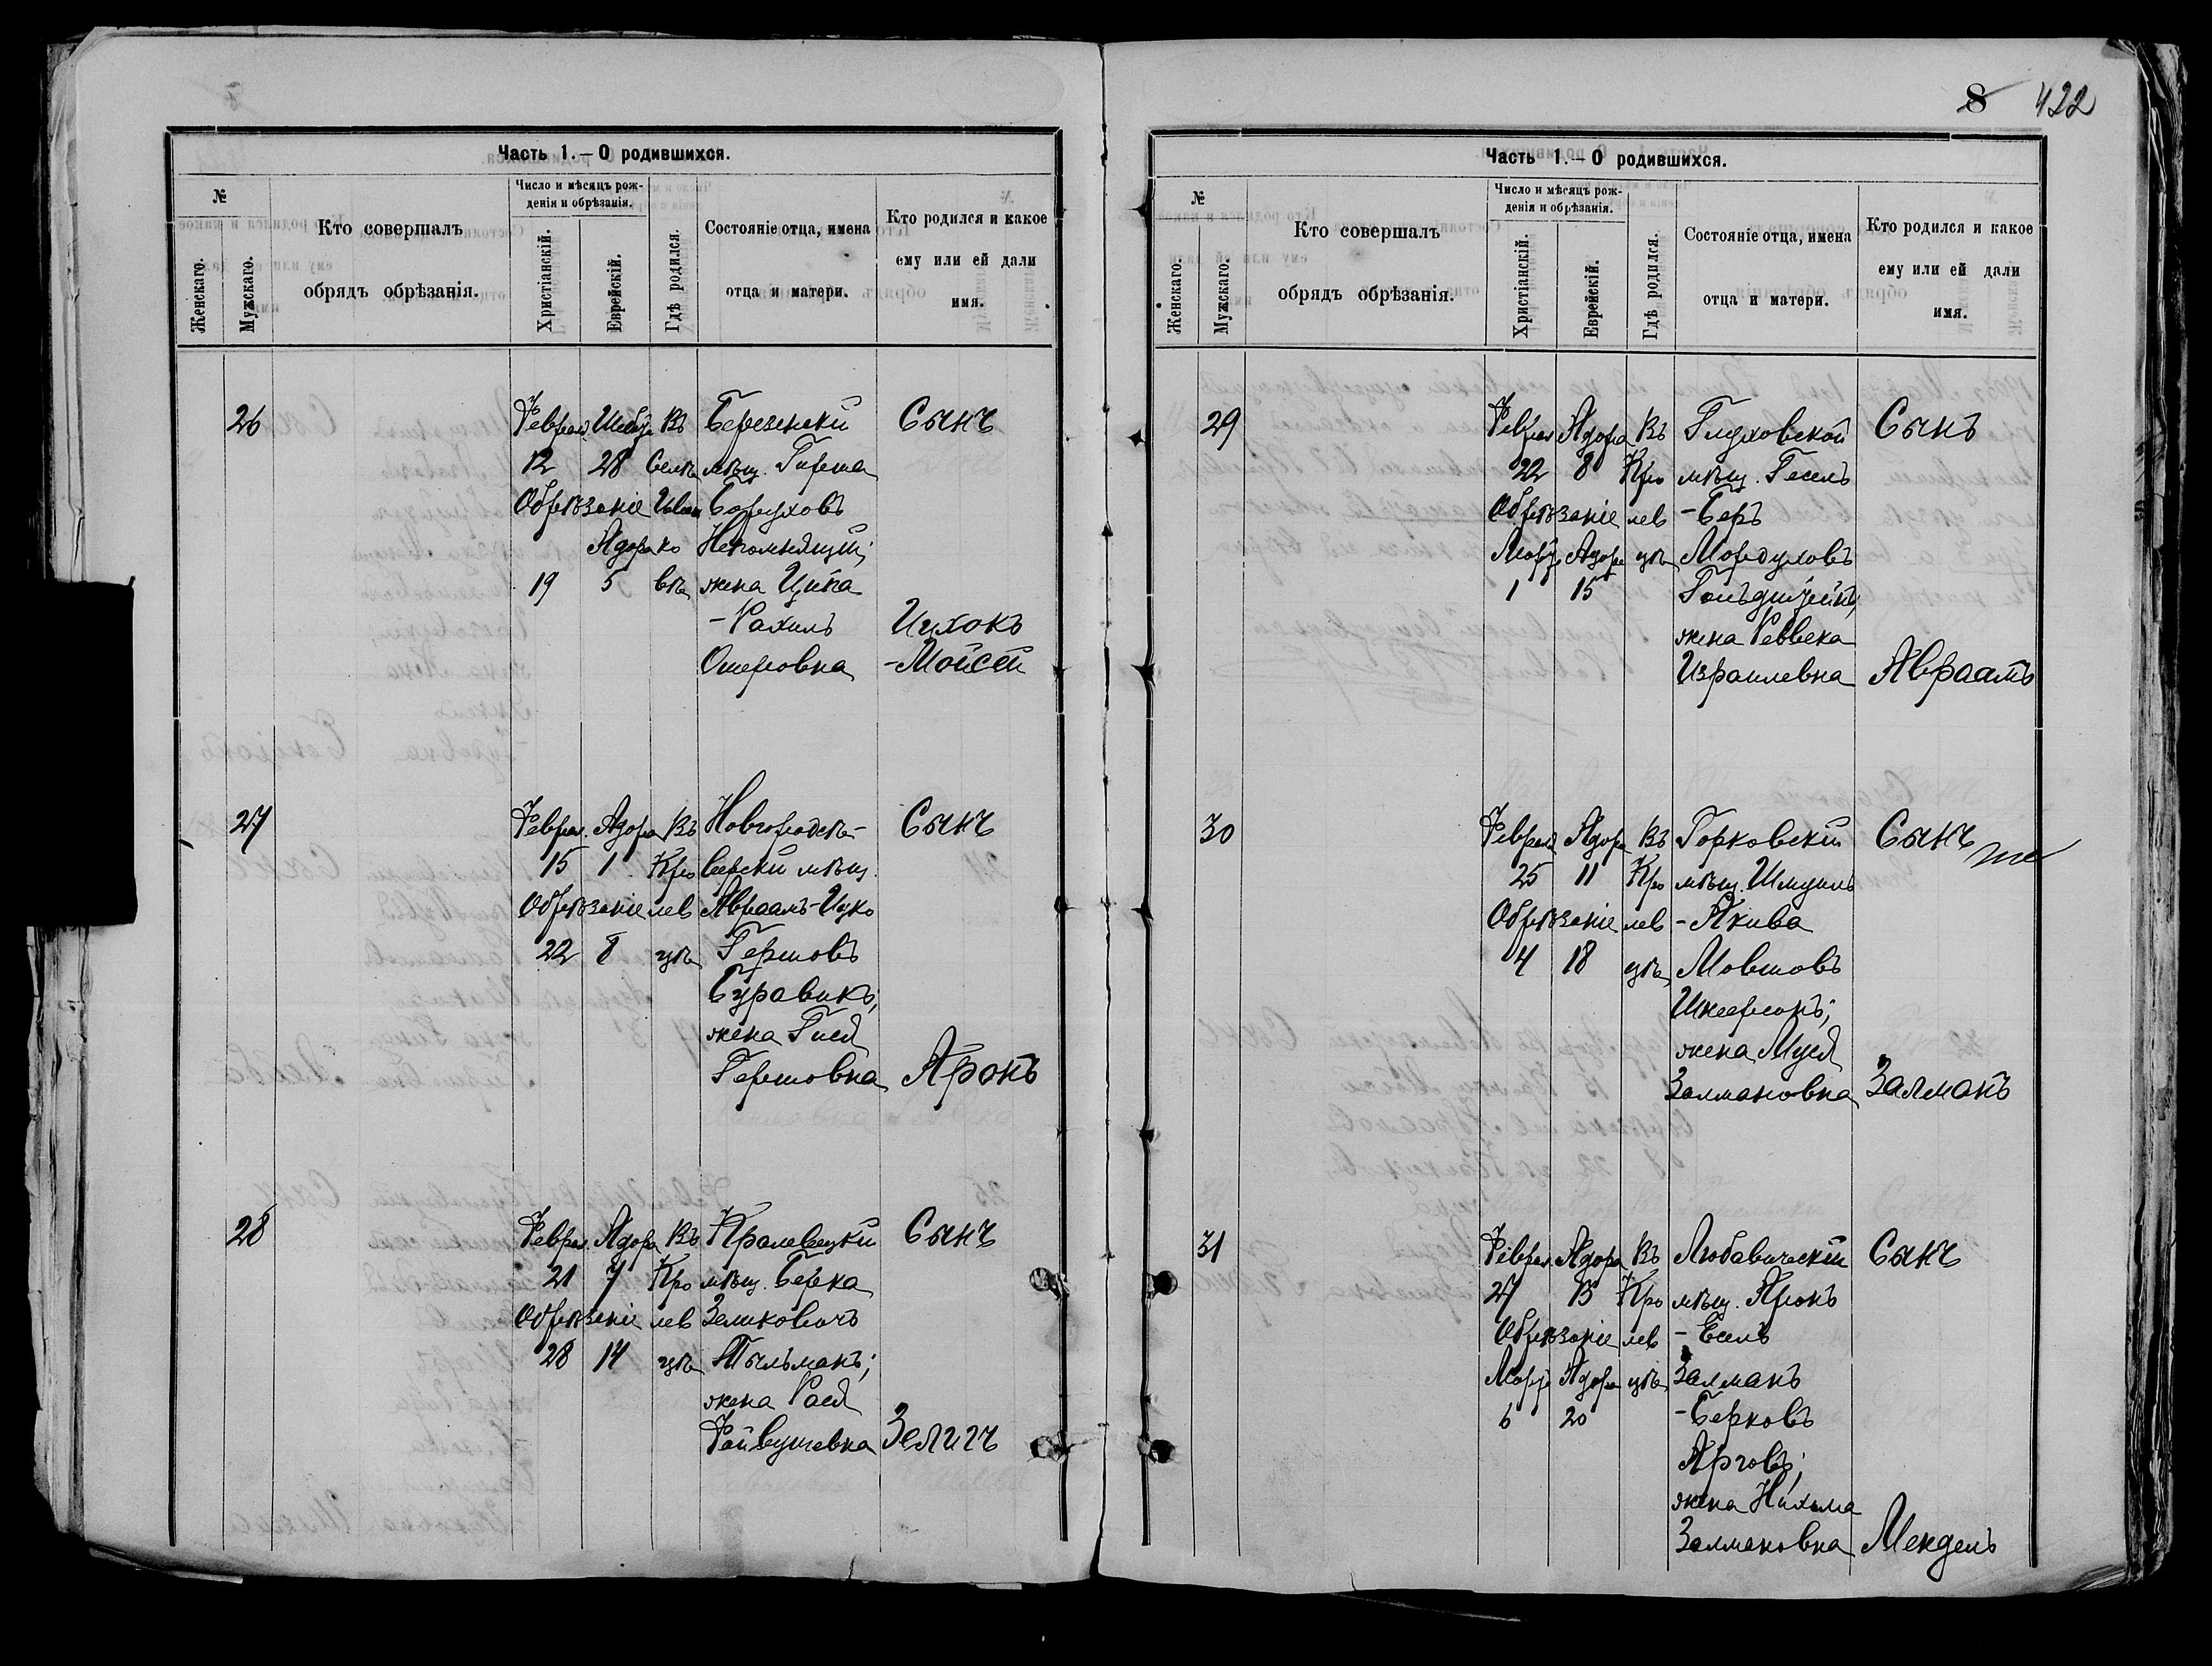 8 422
Часть 1.—О родившихся.
№
Женскаго.
Мужскаго.
Кто совершалъ
обрядъ обрѣзанія.
Число и мѣсяцъ рож-
денія и обрѣзанія.
Христіанскій.
Еврейскій.
Гдѣ родился.
Состояніе отца, имена
отца и матери.
Кто родился и какое
ему или ей дали
имя.
26 Феврал. Въ Березенскій Сынъ
12 28 Селѣ мѣщ. Гирша
Обрѣзаніе Боруховъ
Адара ко Непомнящій;
19 5 вѣ жена Ципа
-Рахиль Ицхокъ
Ошеровна -Мойсей
27 Феврал. Адара Въ Новгородсѣ- Сынъ
15 1 Кро верскій мѣщ.
Обрѣзаніе лев Авраамъ-Ицко
22 8 цѣ Гершовъ
Буравикъ;
жена Гися
Гершовна Аронъ
28 Феврал. Адара Въ Кролевецкій Сынъ
21 7 Кро мѣщ. Берка
Обрѣзаніе лев Зеликовичъ
28 14 цѣ Тыльманъ;
жена Рася
Файвушевна Зелигъ
Часть 1.—О родившихся.
№
Женскаго.
Мужскаго.
Кто совершалъ
обрядъ обрѣзанія.
Число и мѣсяцъ рож-
денія и обрѣзанія.
Христіанскій.
Еврейскій.
Гдѣ родился.
Состояніе отца, имена
отца и матери.
Кто родился и какое
ему или ей дали
имя.
29 Феврал Адара Въ Глуховской Сынъ
22 8 Кро мѣщ. Гесель
Обрѣзаніе лев -Беръ
Марта Адара цѣ Мордуховъ
1 15
жена Реввека
Израилевна Авраамъ
30 Феврал Адара Въ Горковскій Сынъ
25 11 Кро мѣщ. Шмуилъ
Обрѣзаніе лев -Акива
4 18 цѣ Мовшовъ
Шнеерсонъ;
жена Муся
Залмановна Залманъ
31 Феврал. Адара Въ Любавическій Сынъ
27 13 Кро мѣщ. Аронъ
Обрѣзаніе лев -Есель
Марта Адара цѣ Залманъ
6 20 -Берковъ
жена Нихама
Залмановна Мендель